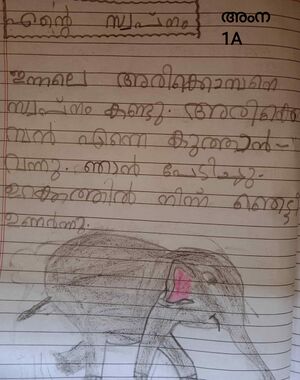 എന്റെ സ്വപ്നം
അംന
1A
ഇന്നലെ അരിക്കൊമ്പനെ
സ്വപ്നം കണ്ടു. അരിക്കൊ
മ്പൻ എന്നെ കുത്താൻ-
വന്നു. ഞാൻ പേടിച്ചു.
ഉറക്കത്തിൽ നിന്ന് ഞെട്ടി
ഉണർന്നു.